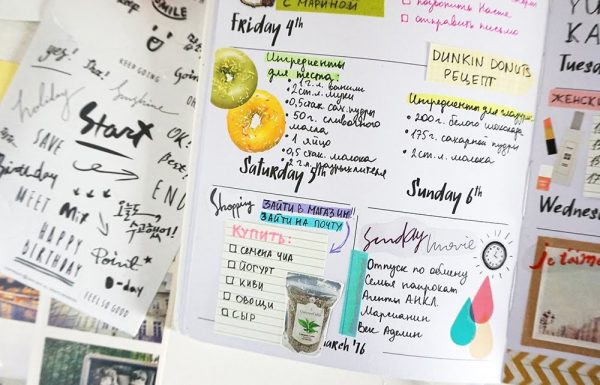 SMILE
yes!
KEEP GOING
Going
Yes!
Sunshine
holiday
Start
OK!
SAVE
Best!
Birthday
END
MEET
Mix
오늘도
수고했어!
HAPPY
BIRTHDAY
Point
D-day
FEEL SO GOOD
с Марином
позвонить Насте
отправить письмо
Friday 4th
DUNKIN DONUTS
РЕЦЕПТ
Ингредиенты
для теста:
2ст.л. муки
0,5 стак. сах. пудры
50 г. сливочного
масла
1 яйцо
0,5 стак. молока
2 г. разрыхлителя
Ингредиенты для глазури:
200 г. белого шоколада
175 г. сахарной пудры
2 ст.л. молока
Saturday 5th
Sunday 6th
Shopping
ЗАЙТИ В МАГАЗИН
ЗАЙТИ НА ПОЧТУ
КУПИТЬ:
СЕМЕНА ЧИА
ЙОГУРТ
КИВИ
ОВОЩИ
СЫР
sunday movie
Отпуск по обмену
Семья напрокат
Агенты А.Н.К.Л.
Марсианин
Век Адалин
march '16
YOU
KA
Tuesd
ЖЕНСКИ
Wednes
je t'aime